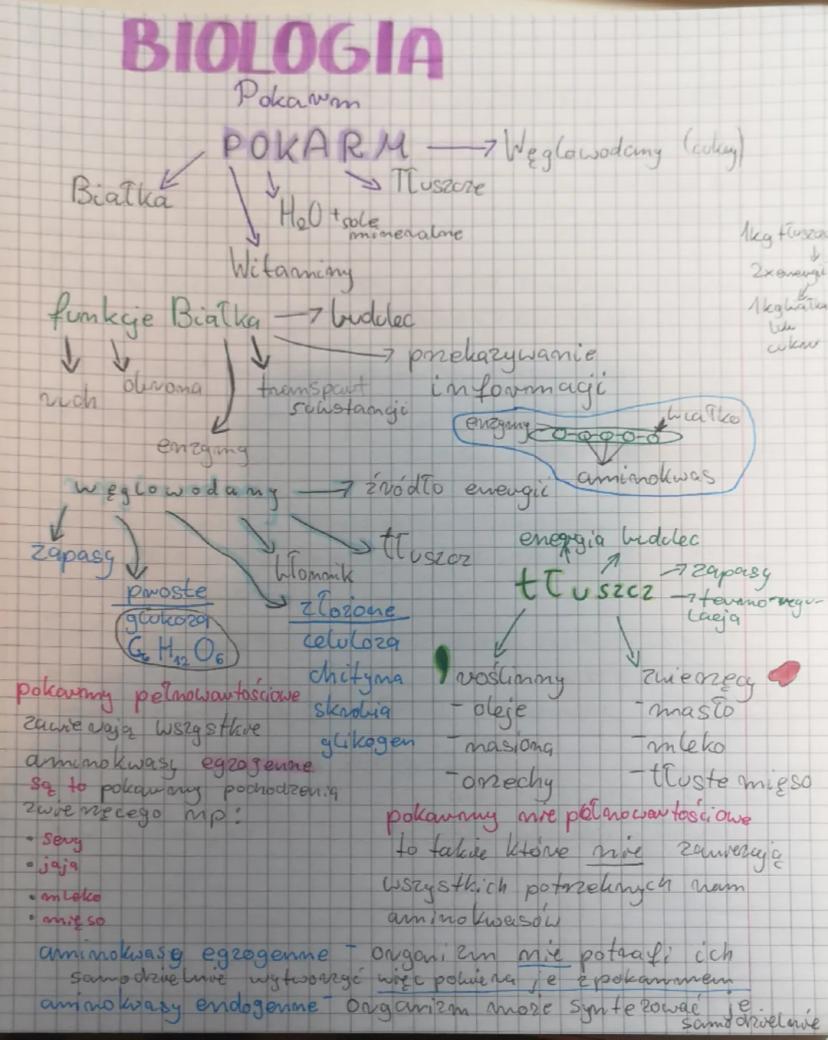 BIOLOGIA
Pokarm
POKARM → Węglowodany (cukry)
Białka
Tłuszcze
H₂O + sole
mineralne
Witaminy
1kg tłuszcz
↓
2x energi
1kg białka
lub
cukru
funkcje Białka → budulec
przekazywanie
informacji
ruch
obrona
transport
substancji
enzymy
enzymy
białko
aminokwas
węglowodany → źródło energii
zapasy
proste
glukoza
C₆ H₁₂ O₆
błonnik
tłuszcz
złożone
celuloza
chityna
skrobia
glikogen
energia budulec
tłuszcz
→ zapasy
→ termo-regu-
lacja
roślinny
- oleje
- nasiona
- orzechy
zwierzęcy
- masło
- mleko
- tłuste mięso
pokarmy pełnowartościowe
zawierają wszystkie
aminokwasy egzogenne
są to pokarmy pochodzenia
zwierzęcego np:
• sery
• jaja
• mleko
• mięso
pokarmy nie pełnowartościowe
to takie które nie zawierają
wszystkich potrzebnych nam
aminokwasów
aminokwasy egzogenne - organizm nie potrafi ich
samodzielnie wytworzyć więc pobiera je z pokarmem
aminokwasy endogenne - organizm może syntezować je
samodzielnie